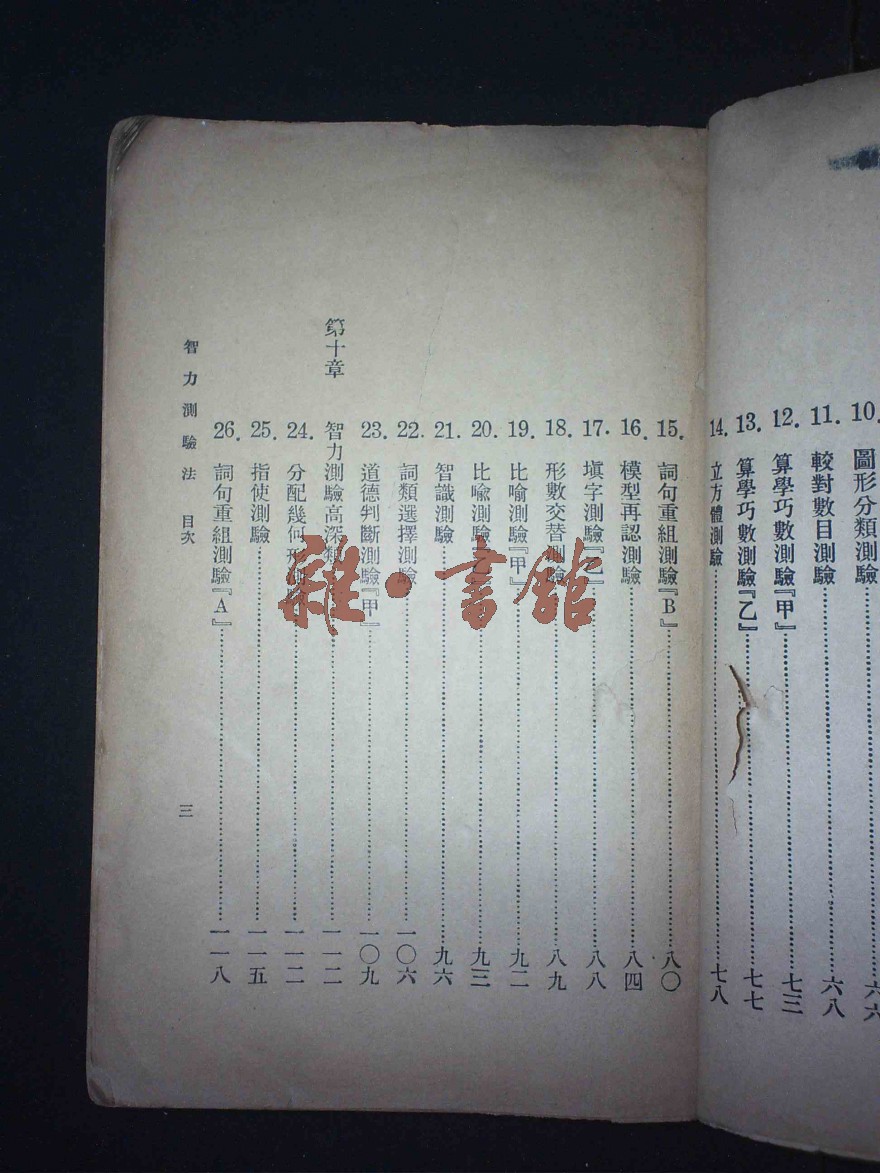 10. 圖形分類測驗……六六
11. 較對數目測驗……六八
12. 算學巧數測驗『甲』……七三
13. 算學巧數測驗『乙』……七七
14. 立方體測驗……七八
15. 詞句重組測驗『B』……八〇
16. 模型再認測驗……八四
17. 填字測驗『乙』……八八
18. 形數交替測驗……八九
19. 比喻測驗『甲』……九二
20. 比喻測驗……九三
21. 智識測驗……九六
22. 詞類選擇測驗……一〇六
23. 道德判斷測驗『甲』……一〇九
第十章 智力測驗高深類……一一二
24. 分配幾何形測驗……一一二
25. 指使測驗……一一五
26. 詞句重組測驗『A』……一一八
智力測驗法 目次
三
雜·書館